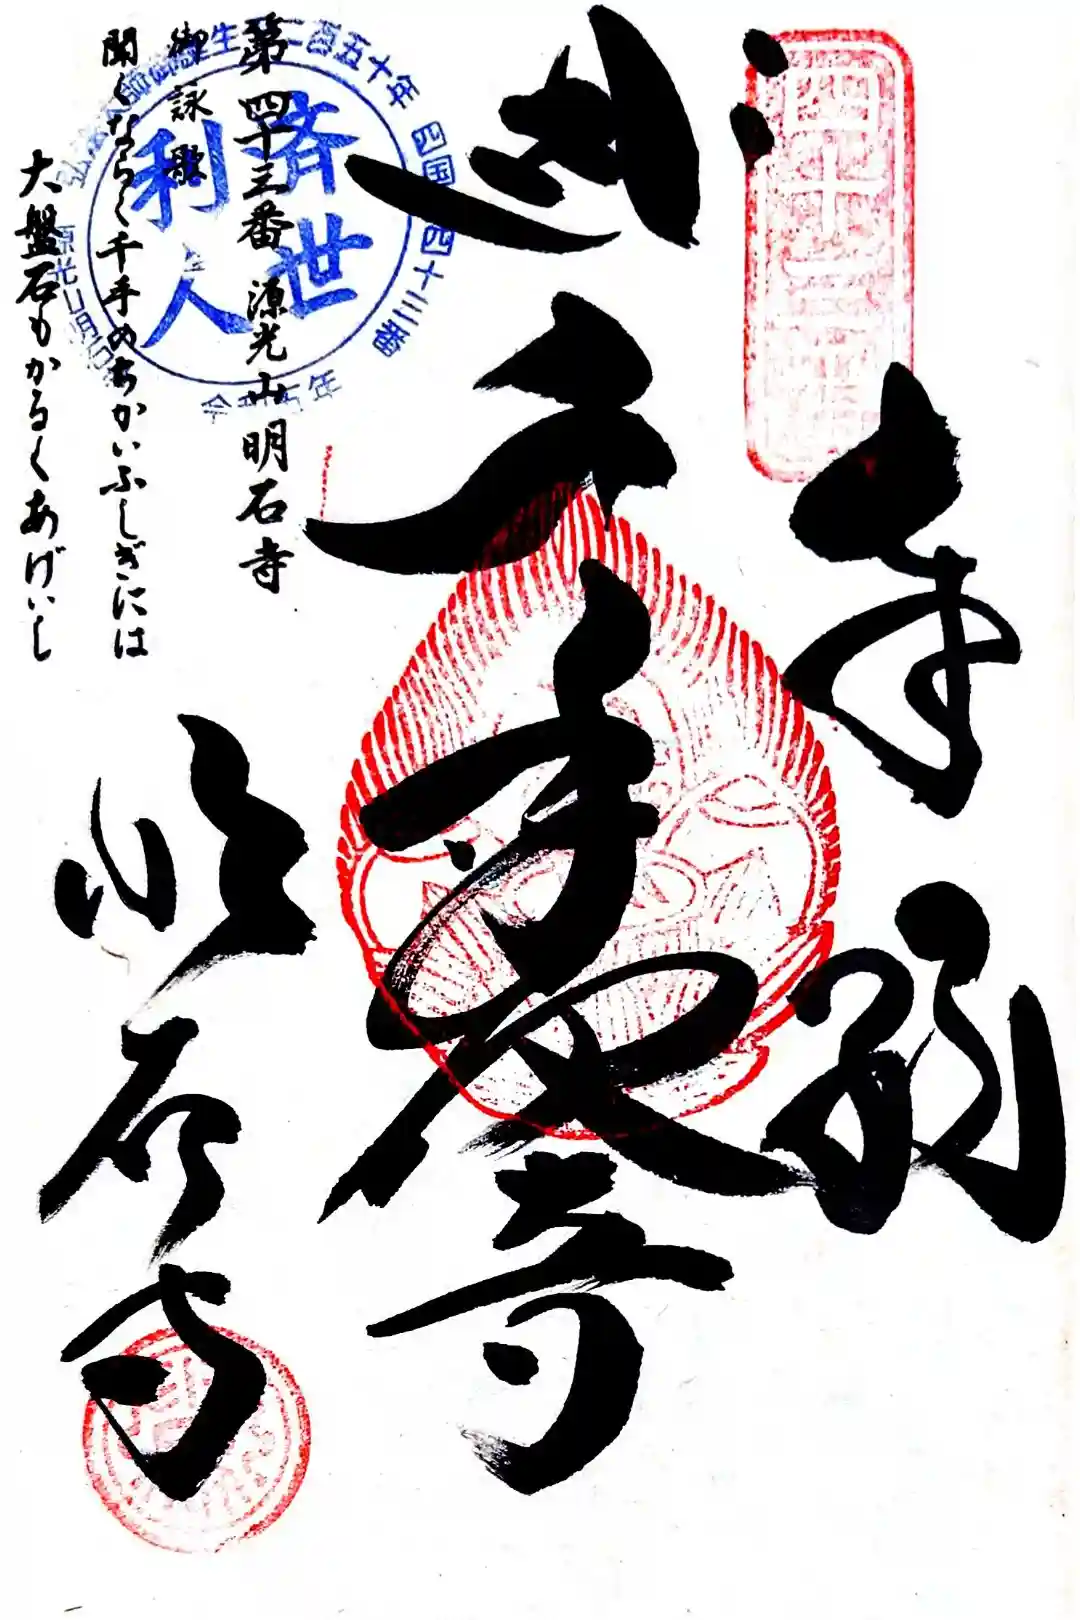 奉納
千手尊
明石寺
四国第四十三番
第四十三番 源光山明石寺
御詠歌
聞くならく千手のちかいふしぎには
大盤石もかろくあげいし
済世
利人
弘法大師御誕生千二百五十年
四国第四十三番
源光山明石寺
令和五年